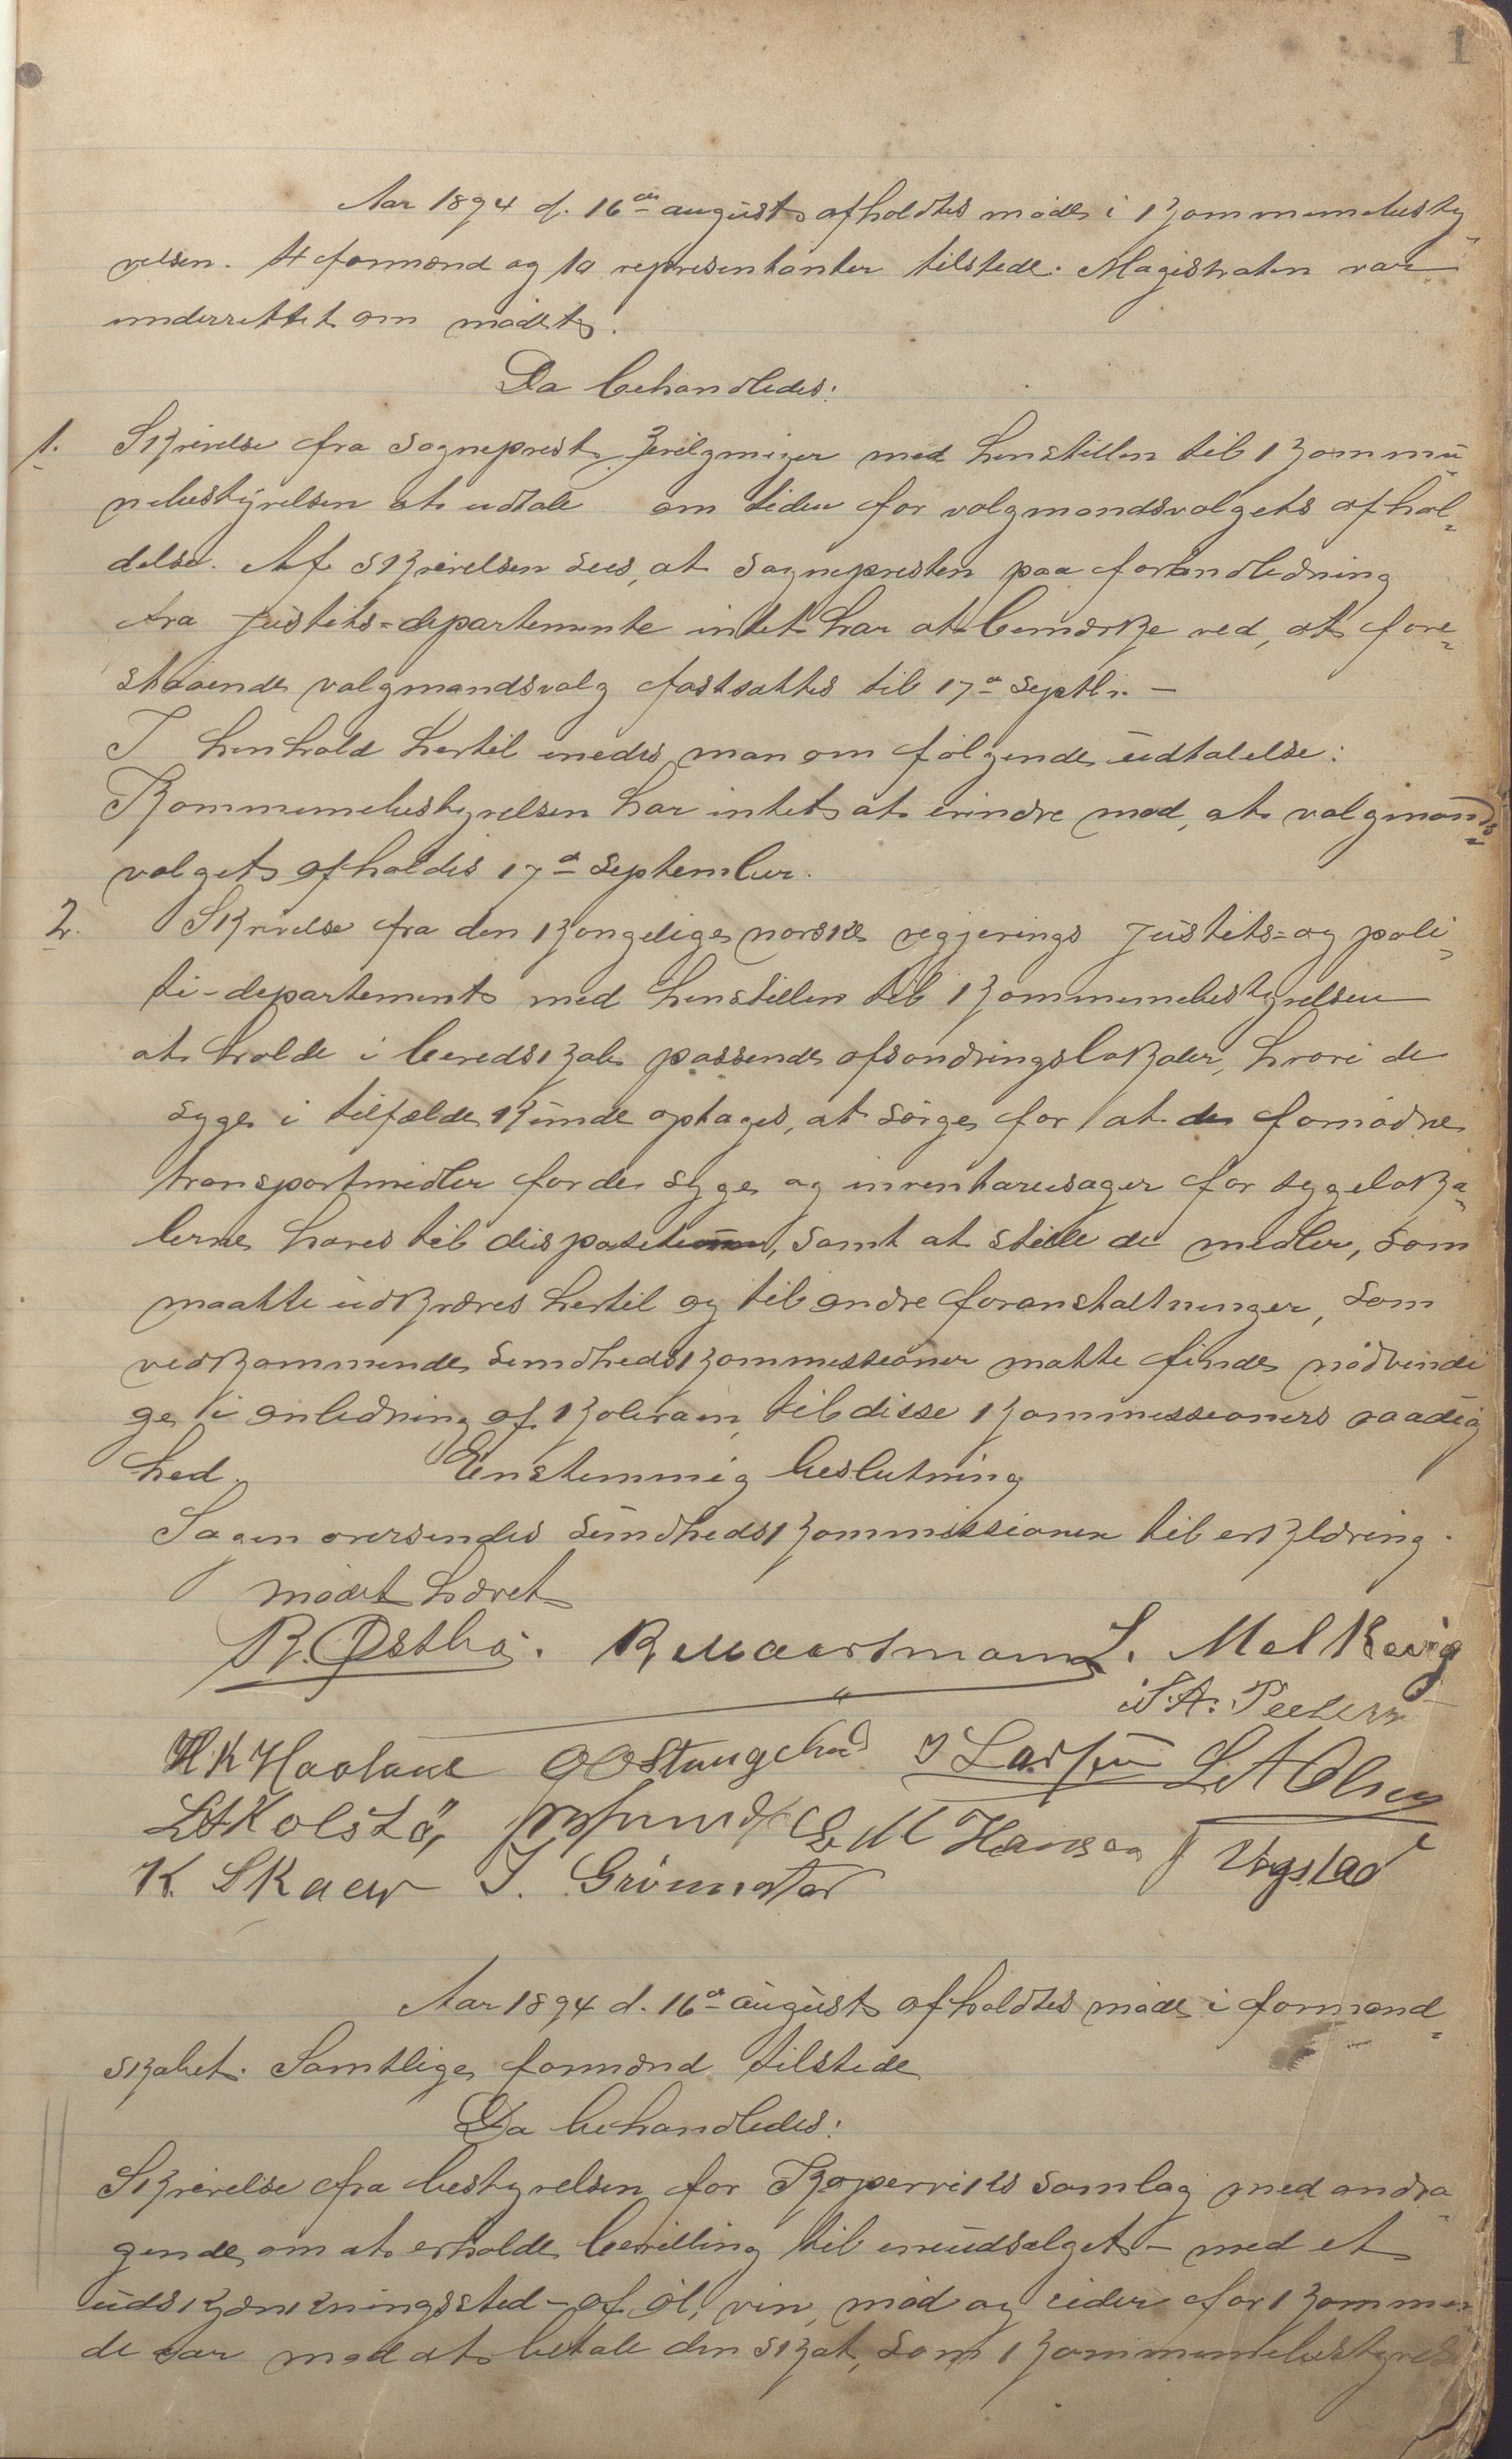 1
Aar 1894 d. 16de august afholdtes møde i kommunebesty-
relsen. 4 formænd og 10 representanter tilstede. Magistraten var
underrettet om mødet.
Da behandledes:
1. Skrivelse fra sogneprest med henstillen til kommu-
nebestyrelsen at udtale om tiden for valgmandsvalgets afhol-
delse. Af skrivelsen sees, at sognepresten paa foranledning
fra Justits-departemente intet har at bemærke ved, at fore-
staaende valgmandsvalg fastsattes til 17de septbr. —
I henhold hertil enedes man om følgende udtalelse:
Kommunebestyrelsen har intet at erindre mod, at valgmands-
valget afholdes 17de september.
2. Skrivelse fra den kongelige norske regjerings Justits- og poli-
ti-departement med henstillen til kommunebestyrelsen
at holde i beredskab passende afsondringslokaler, hvori de
syge i tilfælde kunde optages, at sørge for at de fornødne
transportmidler for de syge og inventariesager for sygeloka-
lerne haves til disposition, samt at stille de midler, som
maatte udkræves hertil og til andre foranstaltninger, som
vedkommende sundhedskommissioner matte finde nødvendi
ge i anledning af koleraen, til disse kommissioners raadig
hed. Enstemmig beslutning
Sagen oversendes sundhedskommissionen til erklæring.
mødet hævet
R. Østbø. L. Melkevig
H K Haaland J Larsen L A Olsen
L A Kolstø M Hansen Vegstad
K. Skaew J. Grönnestad
Aar 1894 d. 16de august afholdtes møde i formand-
skabet. Samtlige formænd tilstede
Da behandledes:
Skrivelse fra bestyrelsen for Koperviks samlag med andra-
gende om at erholde bevilling til eneudsalget – med et
udskjænkningssted – af øl, vin, mød og cider for kommen-
de aar mod at betale den skat, som kommunebestyrels